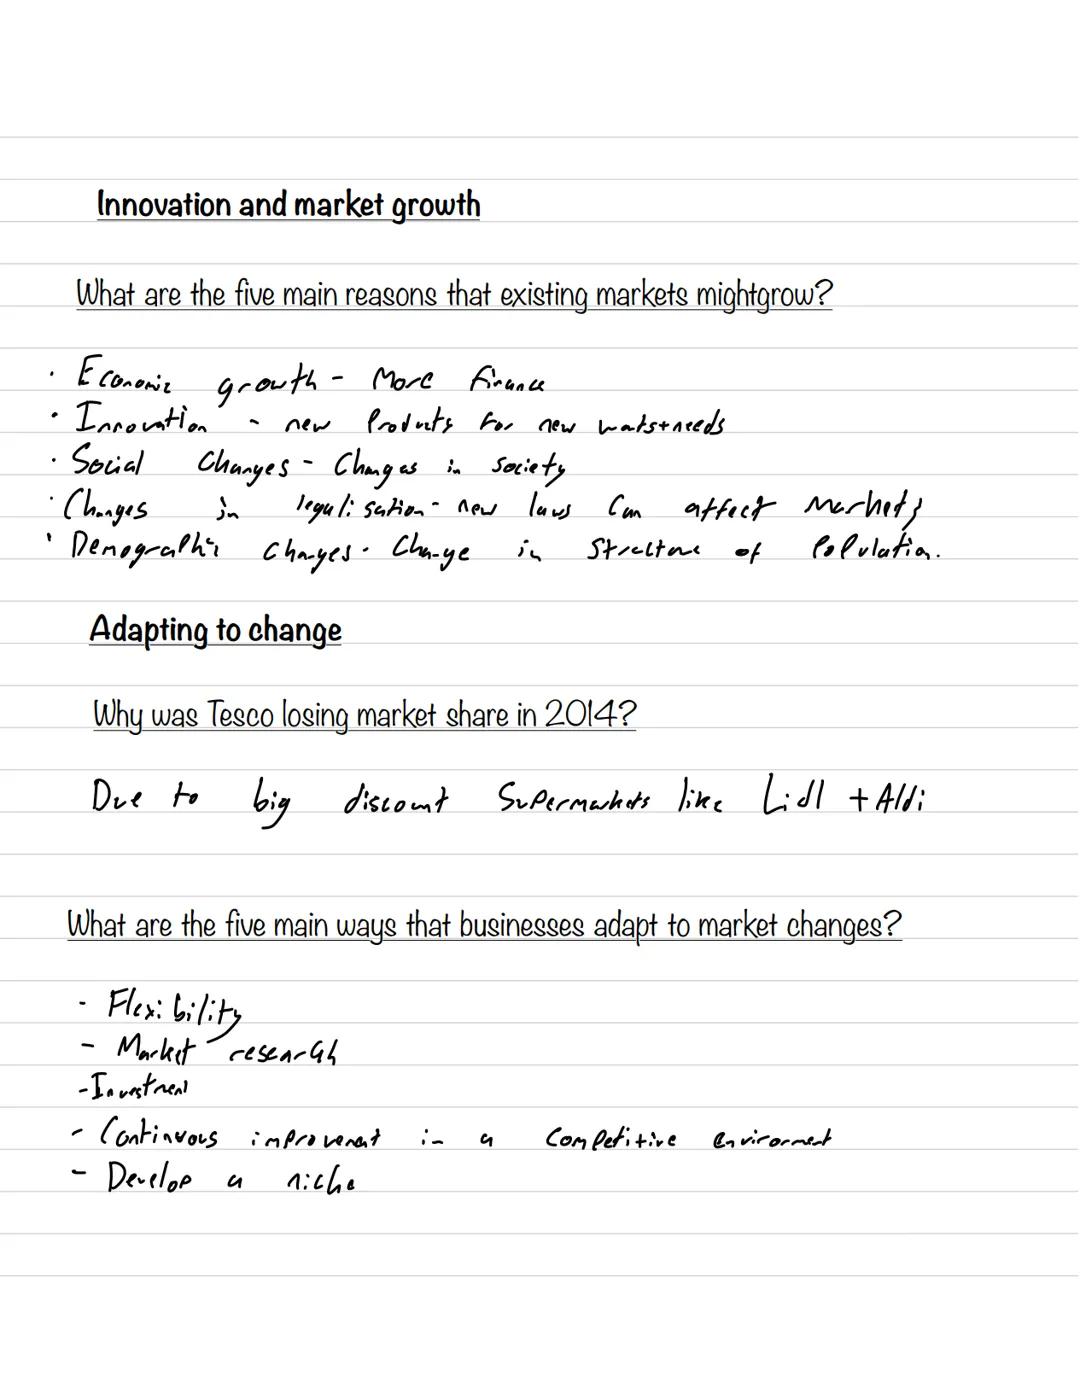 Innovation and market growth
What are the five main reasons that existing markets mightgrow?
· Economic growth - More finance
· Innovation - new Products for new wants+needs
· Social Changes - Changes in society
· Changes in legalisation - new laws Can affect Markets
· Demographic changes - Change in Structure of Population.
Adapting to change
Why was Tesco losing market share in 2014?
Due to big discount Supermarkets like Lidl + Aldi
What are the five main ways that businesses adapt to market changes?
- Flexibility
- Market research
- Investment
- Continuous improvement in a Competitive environment
- Develop a niche